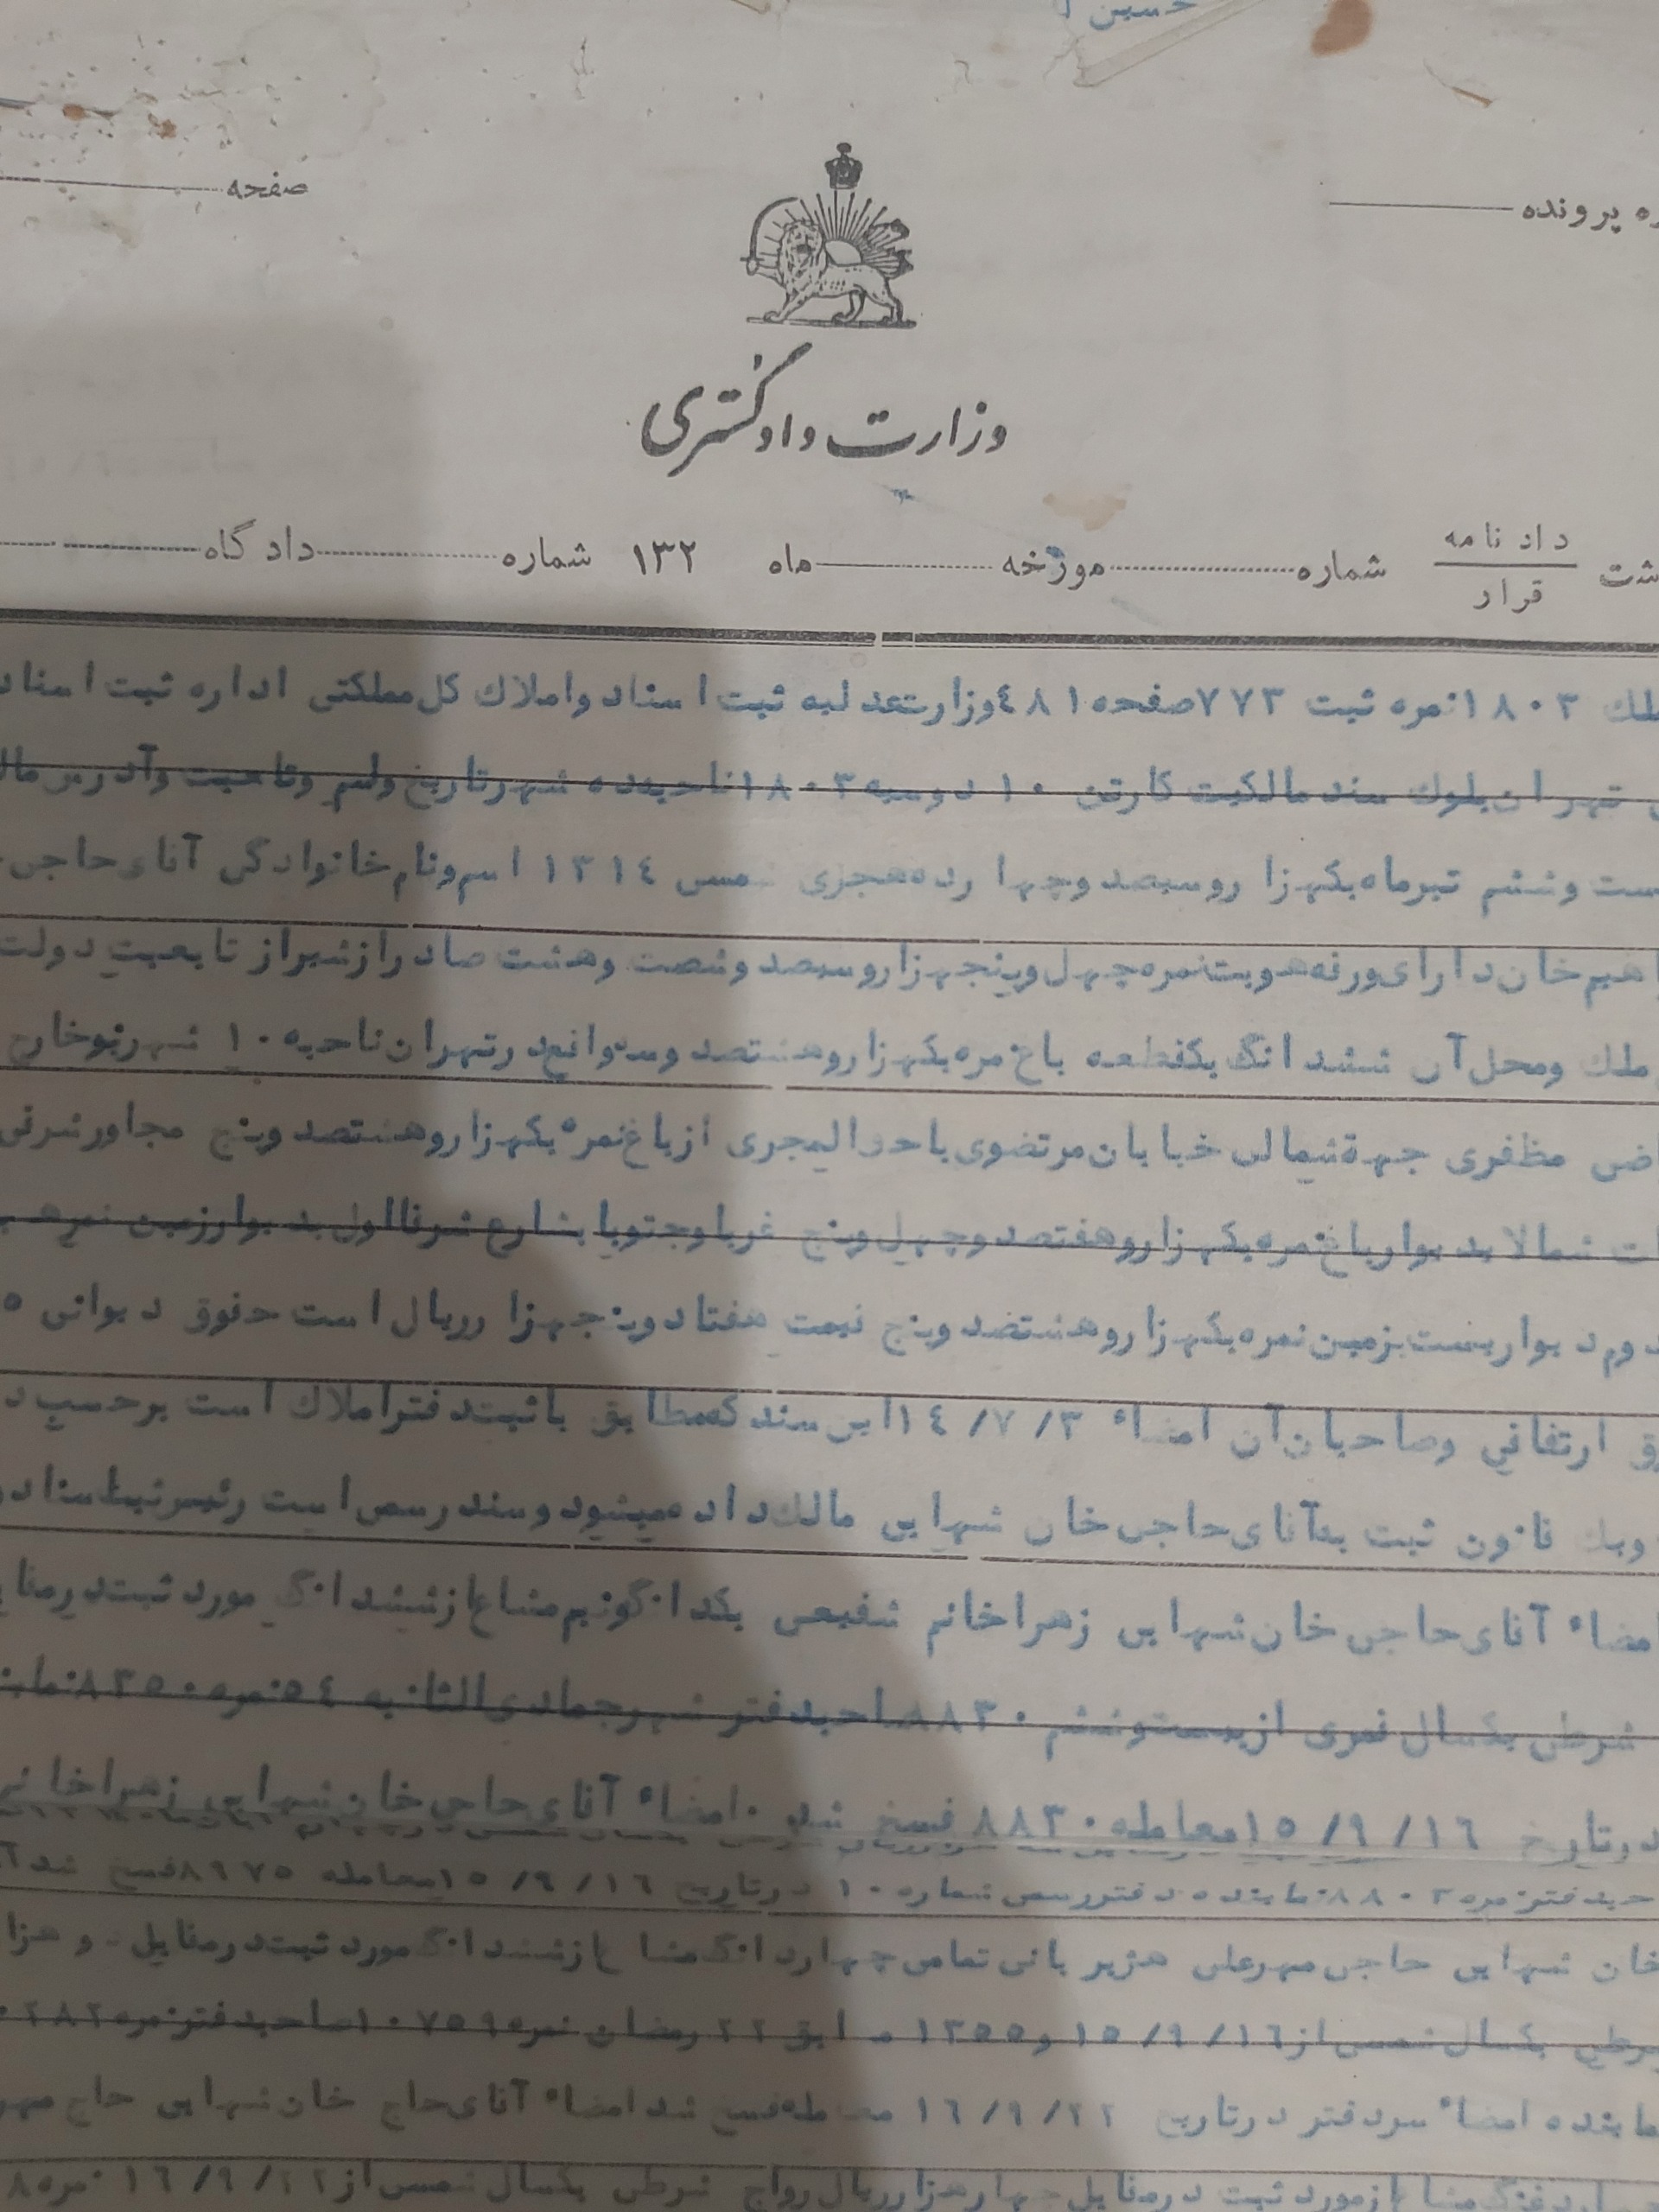 حسین
صفحه
ره پرونده
وزارت دادگستری
شت دادنامه شماره مورخه ماه ۱۳۲ شماره دادگاه
قرار
ملك ۱۸۰۳ نمره ثبت ۷۷۳ صفحه ۴۸۱ وزارتعدلیه ثبت اسناد واملاك كل مملكتی اداره ثبت اسناد
تهران بلوك سند مالكیت كارتن ۱۰ دوسیه ۱۸۰۳ ناحیه ده شهر تاریخ
ست وششم تیرماه یكهزا روسیصد وچها رده هجری شمسی ۱۳۱۴ اسم ونام خانوادگی آقای حاجی
اهیم خان دارای ورقه هویت نمره چهل وپنجهزاروسیصد وشصت وهشت صادرازشیراز تابعیت دولت
ملك ومحل آن ششدانگ یكقطعه باغ نمره یكهزاروهشتصد وسه واقع در تهران ناحیه ۱۰ شهرنوخارج
اضی مظفری جهة شمالی خیابان مرتضوی باحق المجری ازباغ نمره یكهزاروهشتصد وپنج مجاورشرقی
ات شمالا بدیوارباغ نمره یكهزاروهفتصد وچهل وپنج غربا وجنوبا بشارع شرقا اول بدیوارزمین نمره
دوم دیواریست بزمین نمره یكهزاروهشتصد وپنج قیمت هفتاد وپنجهزا رریال است حقوق دیوانی
ق ارتفاقی وصاحبان آن امضاء ۱۴/۷/۳ این سند كه مطابق باثبت دفتراملاك است برحسب
ویك قانون ثبت بآقای حاجی خان شهابی مالك داده میشود وسند رسمی است رئیس ثبت اسناد
امضاء آقای حاجی خان شهابی زهراخانم شفیعی یكدانگ ونیم مشاع ازششدانگ مورد ثبت درمقا
شرطی یكسال قمری ازبیست وششم ۸۸۳۰ صاحبدفتر شهرجمادی الثانیه ۵۴ نمره ۸۳۵۰
درتاریخ ۱۵/۹/۱۶ معامله ۸۸۳۰ فسخ شد ۰ امضاء آقای حاجی خان شهابی زهراخانم
حبدفترنمره ۸۸۰۲ نماینده دفتررسمی شماره ۱۰ درتاریخ ۱۵/۹/۱۶ معامله ۸۹۷۵ فسخ شد
خان شهابی حاجی مهرعلی هژبر بانی تمامی چهاردانگ مشاع ازششدانگ مورد ثبت درمقابل
شرطی یكسال شمسی از ۱۵/۹/۱۶ ۲۲ رمضان نمره ۱۰۷۵۹ صاحبدفترنمره
نماینده امضاء سردفتر درتاریخ ۱۶/۹/۲۲ معامله فسخ شد امضاء آقای حاج خان شهابی حاج
ازمورد ثبت درمقابل چهارهزارریال رواج شرطی یكسال شمسی از ۱۶/۹/۲۲